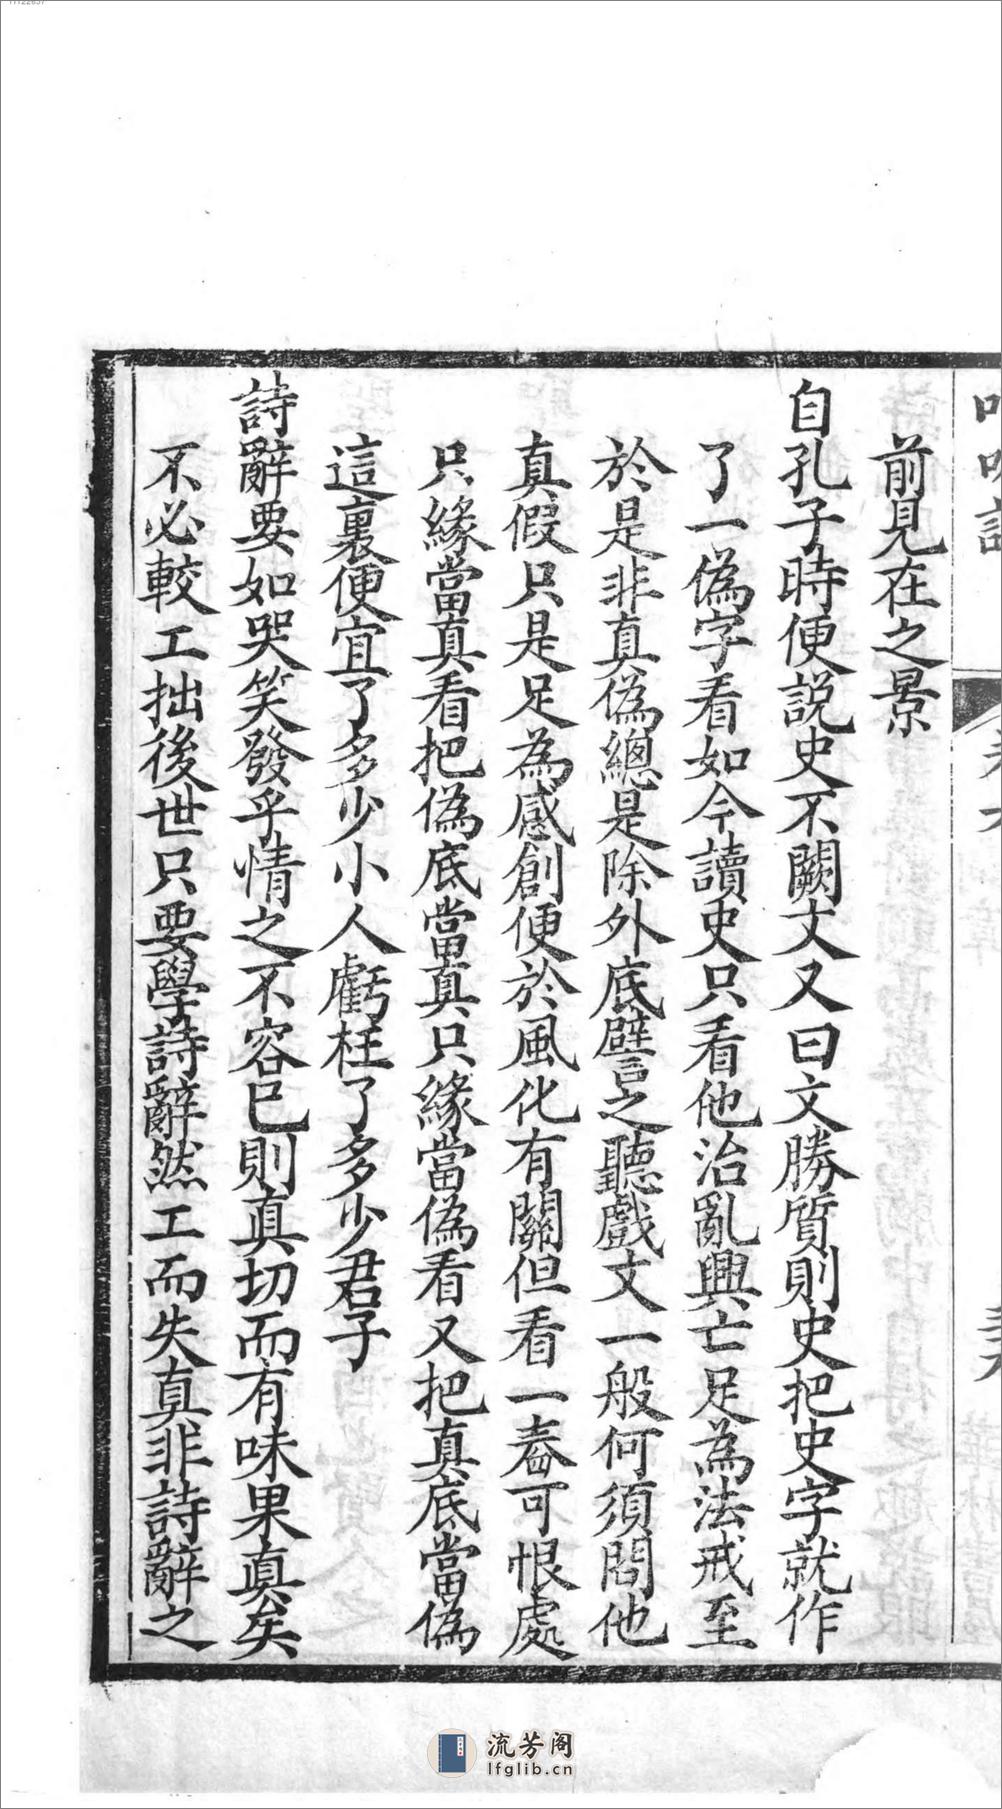 前見在之景
自孔子時便説史不闕文又曰文勝質則史把史字就作
了一偽字看如今讀史只看他治亂興亡足為法戒至
於是非真偽總是除外底譬之聽戲文一般何須問他
真假只是足為感創便於風化有關但看一春可恨處
只緣當真看把偽底當真只緣當偽看又把真底當偽
這裏便宜了多少小人虧枉了多少君子
詩辭要如哭笑發乎情之不容已則真切而有味果真矣
不必較工拙後世只要學詩辭然工而失真非詩辭之
流芳阁
lfglib.cn